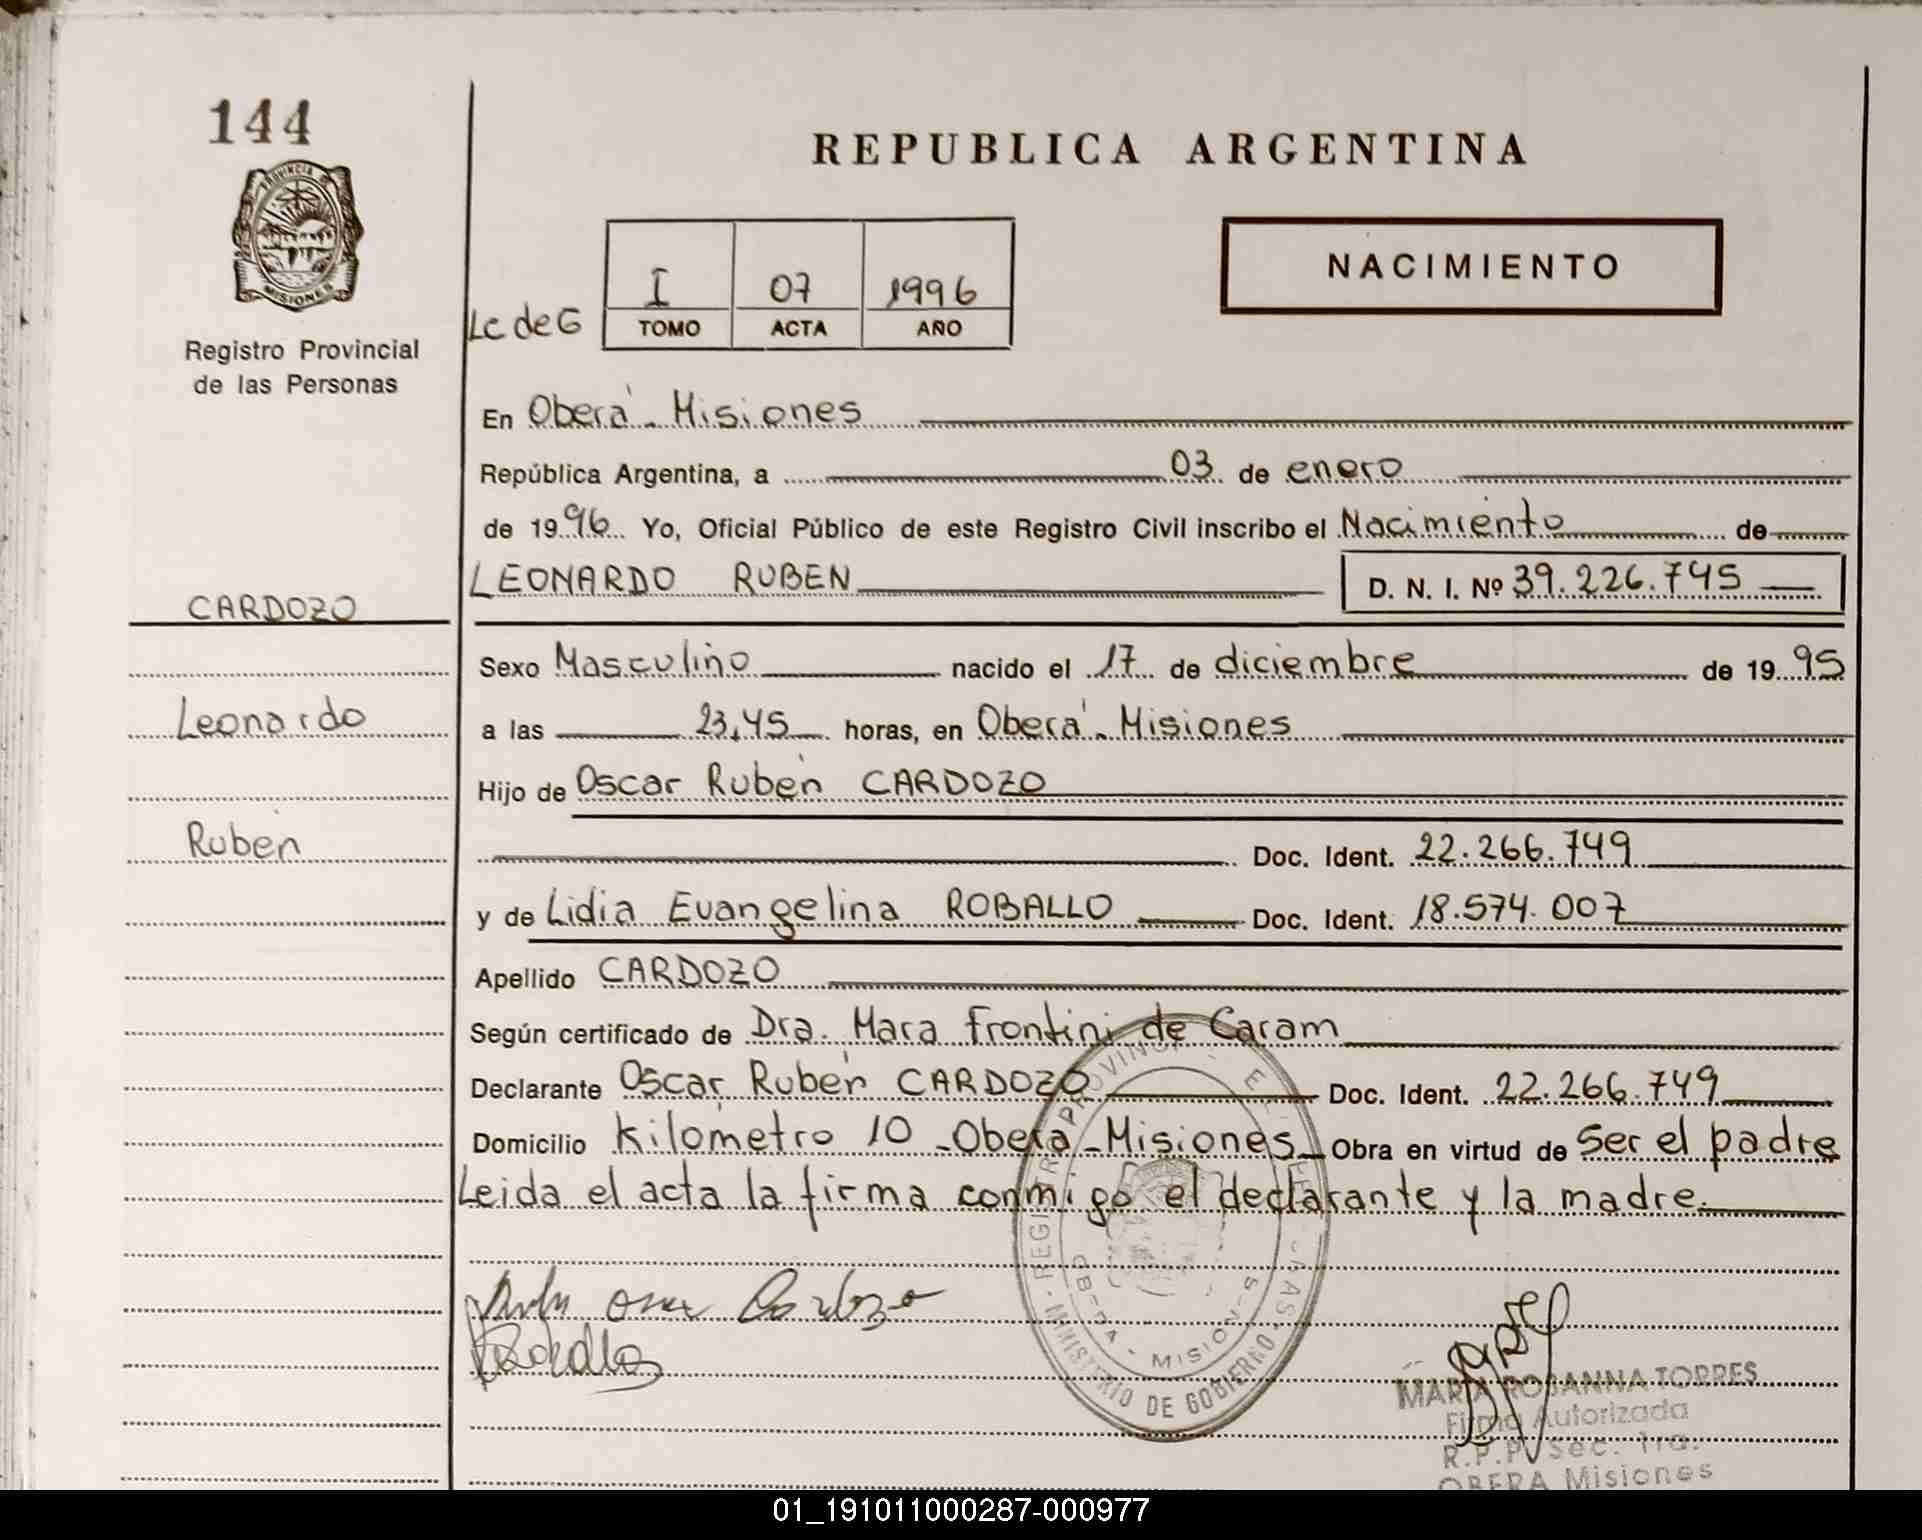 144
REPUBLICA ARGENTINA
PROVINCIA DE
MISIONES
Registro Provincial
de las Personas
NACIMIENTO
Lc de G
I 07 1996
TOMO ACTA AÑO
En Oberá - Misiones
República Argentina, a 03 de enero
de 1996 Yo, Oficial Público de este Registro Civil inscribo el Nacimiento de
LEONARDO RUBEN D. N. I. Nº 39.226.745
CARDOZO
Leonardo
Rubén
Sexo Masculino nacido el 17 de diciembre de 1995
a las 23,45 horas, en Oberá - Misiones
Hijo de Oscar Rubén CARDOZO
Doc. Ident. 22.266.749
y de Lidia Evangelina ROBALLO Doc. Ident. 18.574.007
Apellido CARDOZO
Según certificado de Dra. Mara Frontini de Caram
Declarante Oscar Rubén CARDOZO Doc. Ident. 22.266.749
Domicilio Kilómetro 10 - Oberá - Misiones Obra en virtud de ser el padre
Leida el acta la firma conmigo el declarante y la madre.
MINISTERIO DE GOBIERNO
MISIONES
MARIA ROSANNA TORRES
Firma Autorizada
R.P.P. Sec. 1ra.
OBERA Misiones
01_191011000287-000977